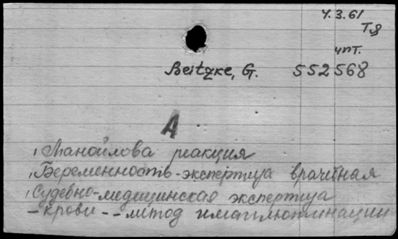 4.3.61
Т,8
чпт.
Beitzke, G. 552568
А
, Манойлова реакция
, Беременность - экспертиза врачебная
, Судебно-медицинская экспертиза
- крови -- метод имаглютинации